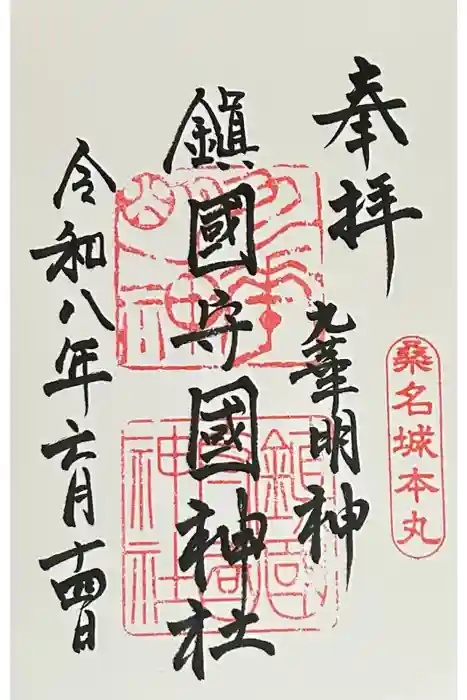 奉拝
九華明神
桑名城本丸
鎮國守國神社
令和八年六月十四日